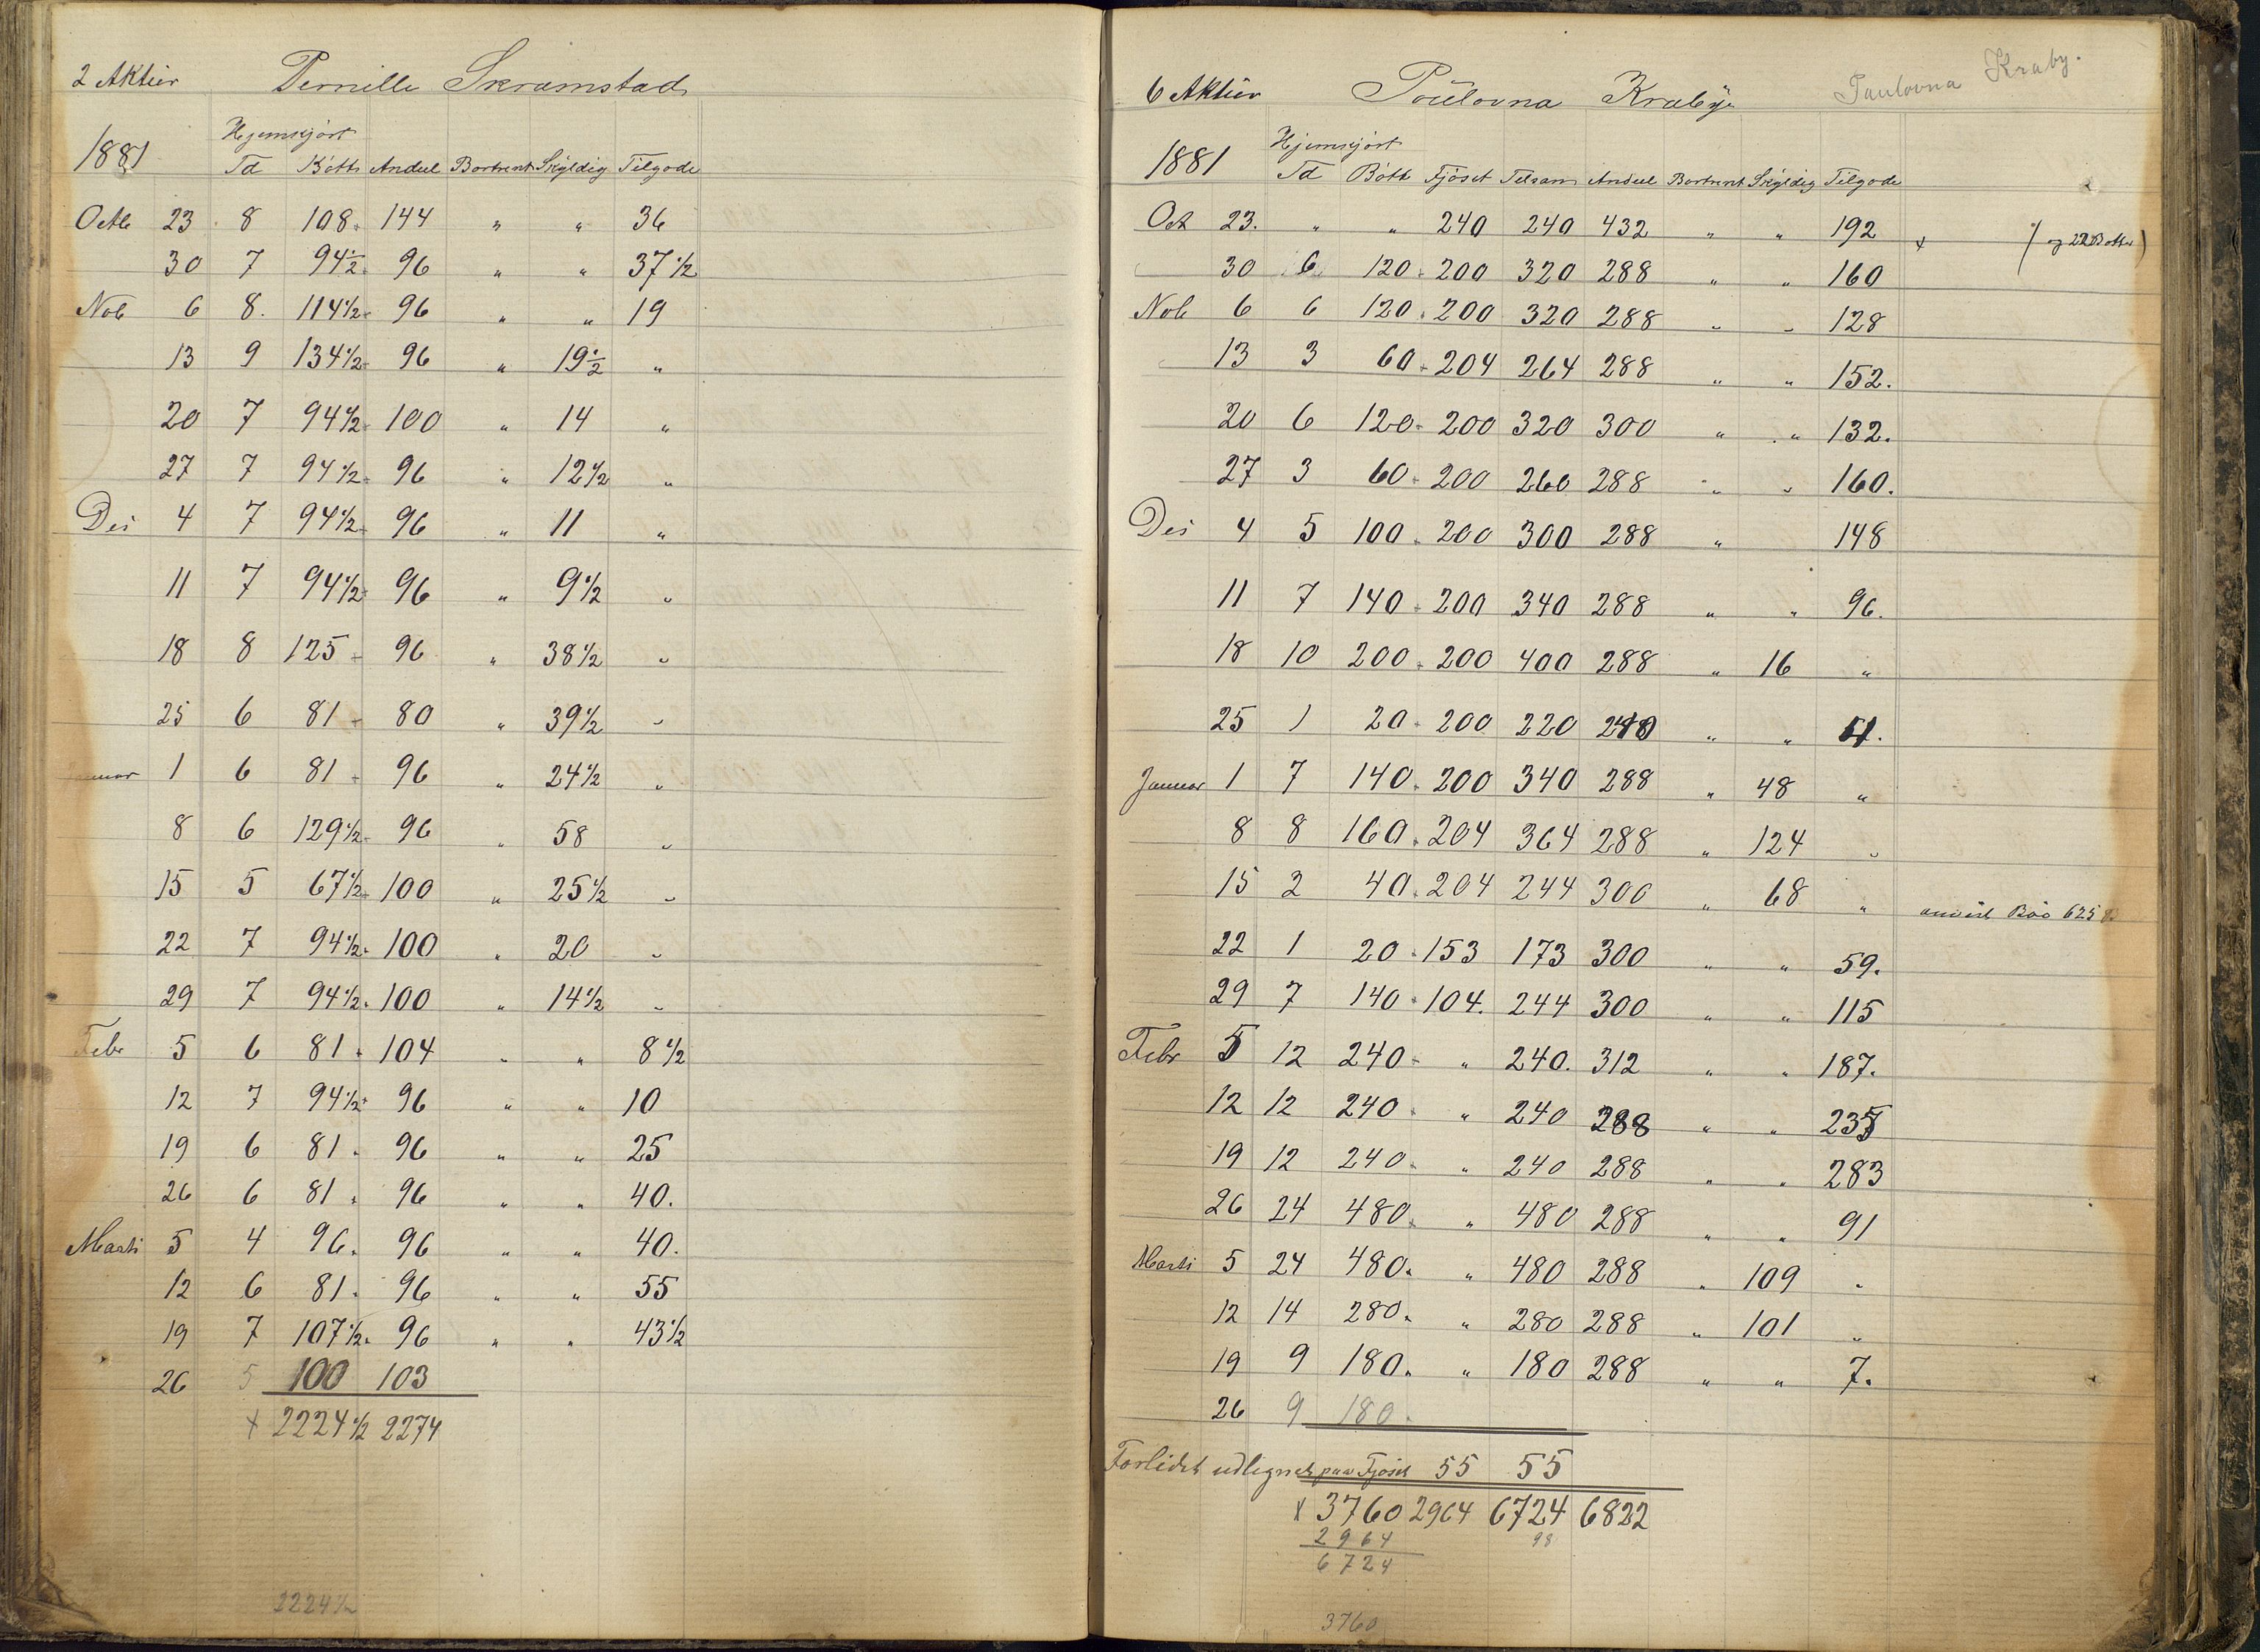 2 Aktier Pernille Skramstad
Hjemkjört
1881 Td Bötte Andeel Bortrent Skyldig Tilgode
Octb 23 8 108 144 " " 36
30 7 94 1/2 96 " " 37 1/2
Nob 6 8. 114 1/2 96 " " 19
13 9 134 1/2 96 " 19 1/2 "
20 7 94 1/2 100 " 14 "
27 7 94 1/2 96 " 12 1/2 "
Des 4 7 94 1/2 96 " 11 "
11 7 94 1/2 96 " 9 1/2 "
18 8 125 96 " 38 1/2 "
25 6 81 80 " 39 1/2 "
anuar 1 6 81 96 " 24 1/2 "
8 6 129 1/2 96 " 58 "
15 5 67 1/2 100 " 25 1/2 "
22 7 94 1/2 100 " 20 "
29 7 94 1/2 100 " 14 1/2 "
Febr 5 6 81 104 " " 8 1/2
12 7 94 1/2 96 " " 10
19 6 81 96 " " 25
26 6 81 96 " " 40.
Marti 5 4 96 96 " " 40.
12 6 81 96 " " 55
19 7 107 1/2 96 " " 43 1/2
26 5 100 103
x 2224 1/2 2274
2224 1/2
6 Aktier Poulovna Krabye Paulovna Kraby.
Hjemkjört
1881 Td Bötte Fjöset Tilsam Andeel Bortrent Skyldig Tilgode
Oct 23. " " 240 240 432 " " 192 x
30 6 120 200 320 288 " " 160
Nob 6 6 120 200 320 288 " " 128
13 3 60 204 264 288 " " 152.
20 6 120 200 320 300 " " 132.
27 3 60 200 260 288 " " 160.
Des 4 5 100 200 300 288 " 148
11 7 140 200 340 288 " " 96.
18 10 200 200 400 288 " 16 "
25 1 20 200 220 240 " "
Januar 1 7 140 200 340 288 " 48 "
8 8 160 204 364 288 " 124 "
15 2 40 204 244 300 " 68 " 625
22 1 20 153 173 300 " " 59.
29 7 140 104. 244 300 " " 115
Febr 5 12 240 " 240. 312 " " 187.
12 12 240 " 240 288 " " 235
19 12 240 " 240 288 " " 283
26 24 480 " 480 288 " " 91
Marti 5 24 480 " 480 288 " 109 "
12 14 280 " 280 288 " 101 "
19 9 180 " 180 288 " " 7.
26 9 180
Forlidet udlignet paa Fjöset 55 55
x 3760 2964 6724 6822
2964 98
6724
3760